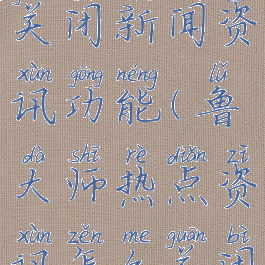 关闭新闻资
xùn gōng néng lǔ
讯功能(鲁
dà shī rè diǎn zī
大师热点资
xùn zěn me guān bì
讯怎么关闭